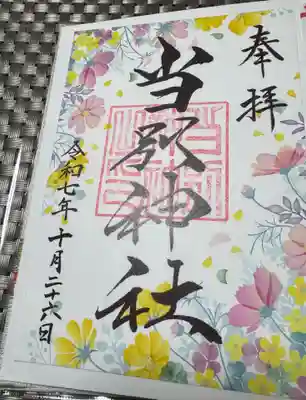 奉拝
当別神社
令和七年十月二十六日